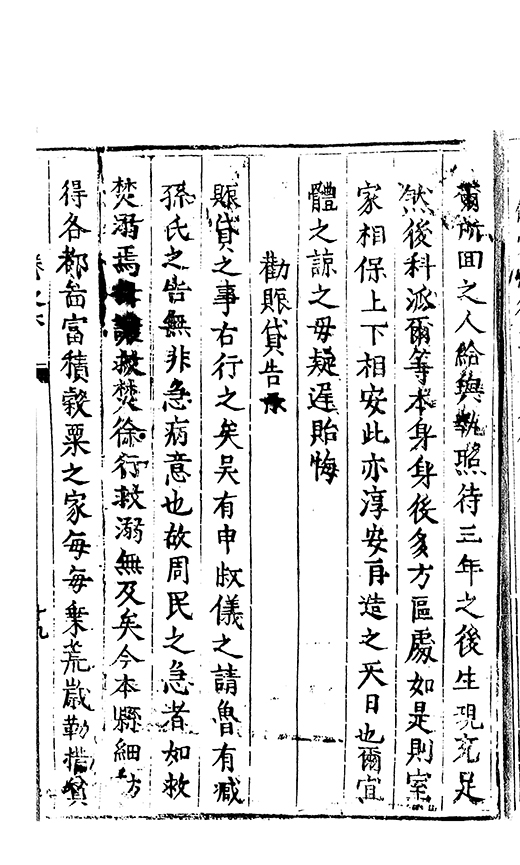 爾所回之人給與執照待三年之後生現充足
然後科派爾等本身身後多方區處如是則室
家相保上下相安此亦淳安再造之天日也爾宜
體之諒之毋疑遲貽悔
勸賑貸告示
賑貸之事古行之矣吳有申叔儀之請魯有臧
孫氏之告無非急病意也故周民之急者如救
焚溺焉救焚徐行救溺無及矣今本縣細訪
得各都啚富積穀粟之家每每乗荒歲勒揹貧
卷之
十九